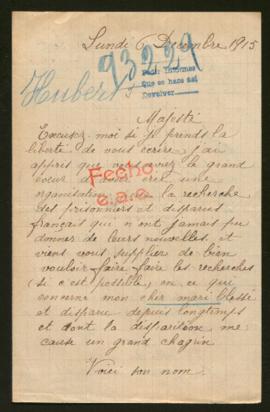 Lundi 6 Decembre 1915
93229
Hubert
Pedir informes
Que se hace así
Devolver
Majesté
Excusez-moi si je prends la
liberté de vous écrire, j'ai
appris que vous avez le grand
cœur d'avoir créé une
organisation pour la recherche
des prisonniers et disparus
français qui n'ont jamais pu
donner de leurs nouvelles, et
viens vous supplier de bien
vouloir faire faire les recherches
(si c'est possible) en ce qui
concerne mon cher mari blessé
et disparu depuis longtemps
et dont la disparition me
cause un grand chagrin
Voici son nom
Fecho